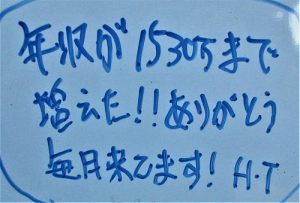 年収が1530万まで
増えた!!ありがとう
毎月来てます! H.T